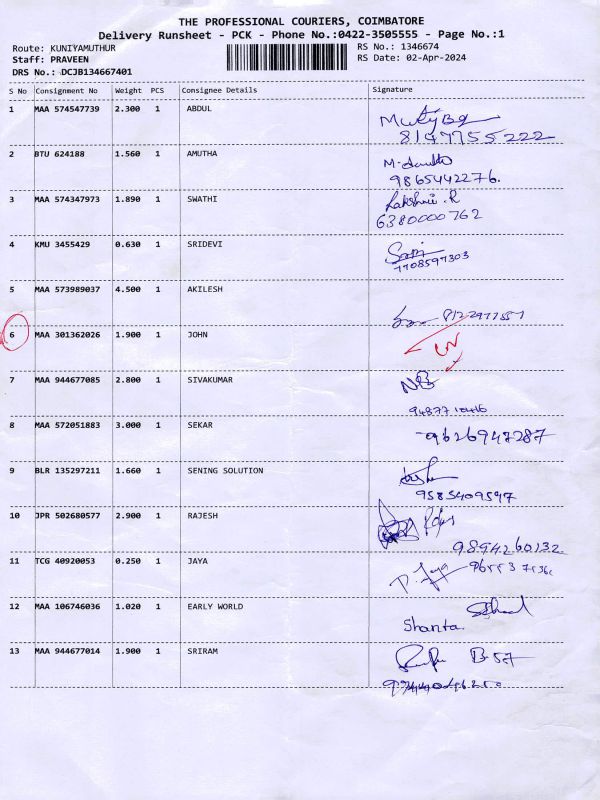 THE PROFESSIONAL COURIERS, COIMBATORE
Delivery Runsheet - PCK - Phone No.:0422-3505555 - Page No.:1
Route: KUNIYAMUTHUR
Staff: PRAVEEN
DRS No.: DCJB134667401
RS No.: 1346674
RS Date: 02-Apr-2024
S No Consignment No Weight PCS Consignee Details Signature
1 MAA 574547739 2.300 1 ABDUL
8197755222
2 BTU 624188 1.560 1 AMUTHA
9865442276.
3 MAA 574347973 1.890 1 SWATHI Lakshmi.R
6380000762
4 KMU 3455429 0.630 1 SRIDEVI
7708597303
5 MAA 573989037 4.500 1 AKILESH
6 MAA 301362026 1.900 1 JOHN
7 MAA 944677085 2.800 1 SIVAKUMAR
8 MAA 572051883 3.000 1 SEKAR
9626947287
9 BLR 135297211 1.660 1 SENING SOLUTION
9585409597
10 JPR 502680577 2.900 1 RAJESH
9894260132
11 TCG 40920053 0.250 1 JAYA P. Jaya
12 MAA 106746036 1.020 1 EARLY WORLD
Shanta
13 MAA 944677014 1.900 1 SRIRAM